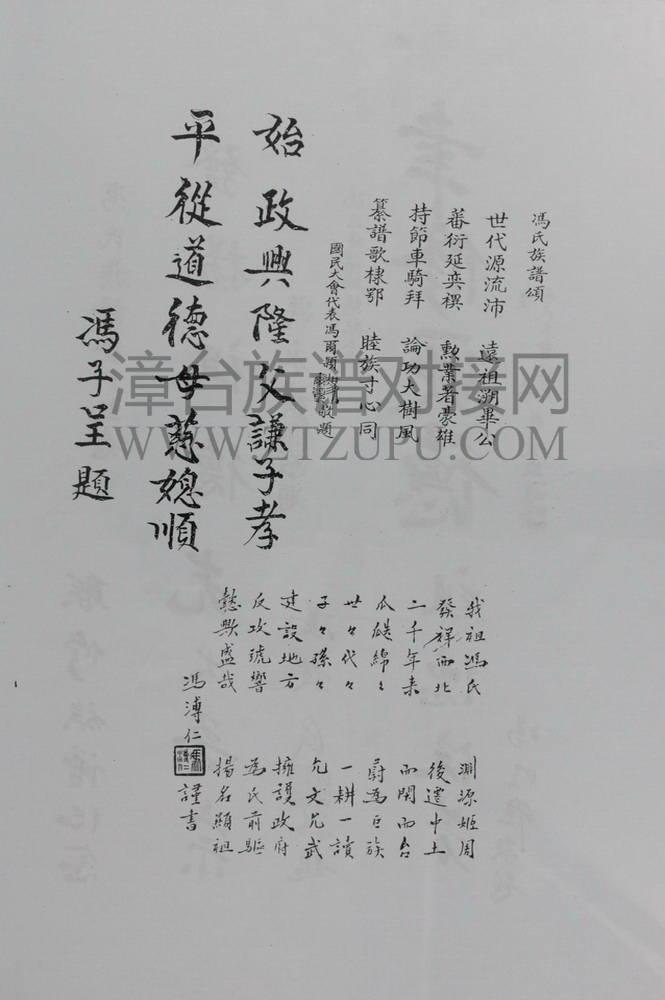 馮氏族譜頌
世代源流沛 遠祖溯畢公
蕃衍延奕禩 勲業著豪雄
持節車騎拜 論功大樹風
纂譜歌棣鄂 睦族寸心同
國民大會代表馮爾 敬題
始政興隆父謙子孝
平從道德母慈媳順
馮子呈題
我祖馮氏 淵源姬周
發祥西北 後遷中土
二千年來 而閩而台
瓜瓞綿々 蔚為巨族
世々代々 一耕一讀
子々孫々 允文允武
建設地方 擁護政府
反攻號響 為民前驅
懿歟盛哉 揚名顯祖
馮溥仁 謹書
漳台族谱对接网
WWW.ZTZUPU.COM